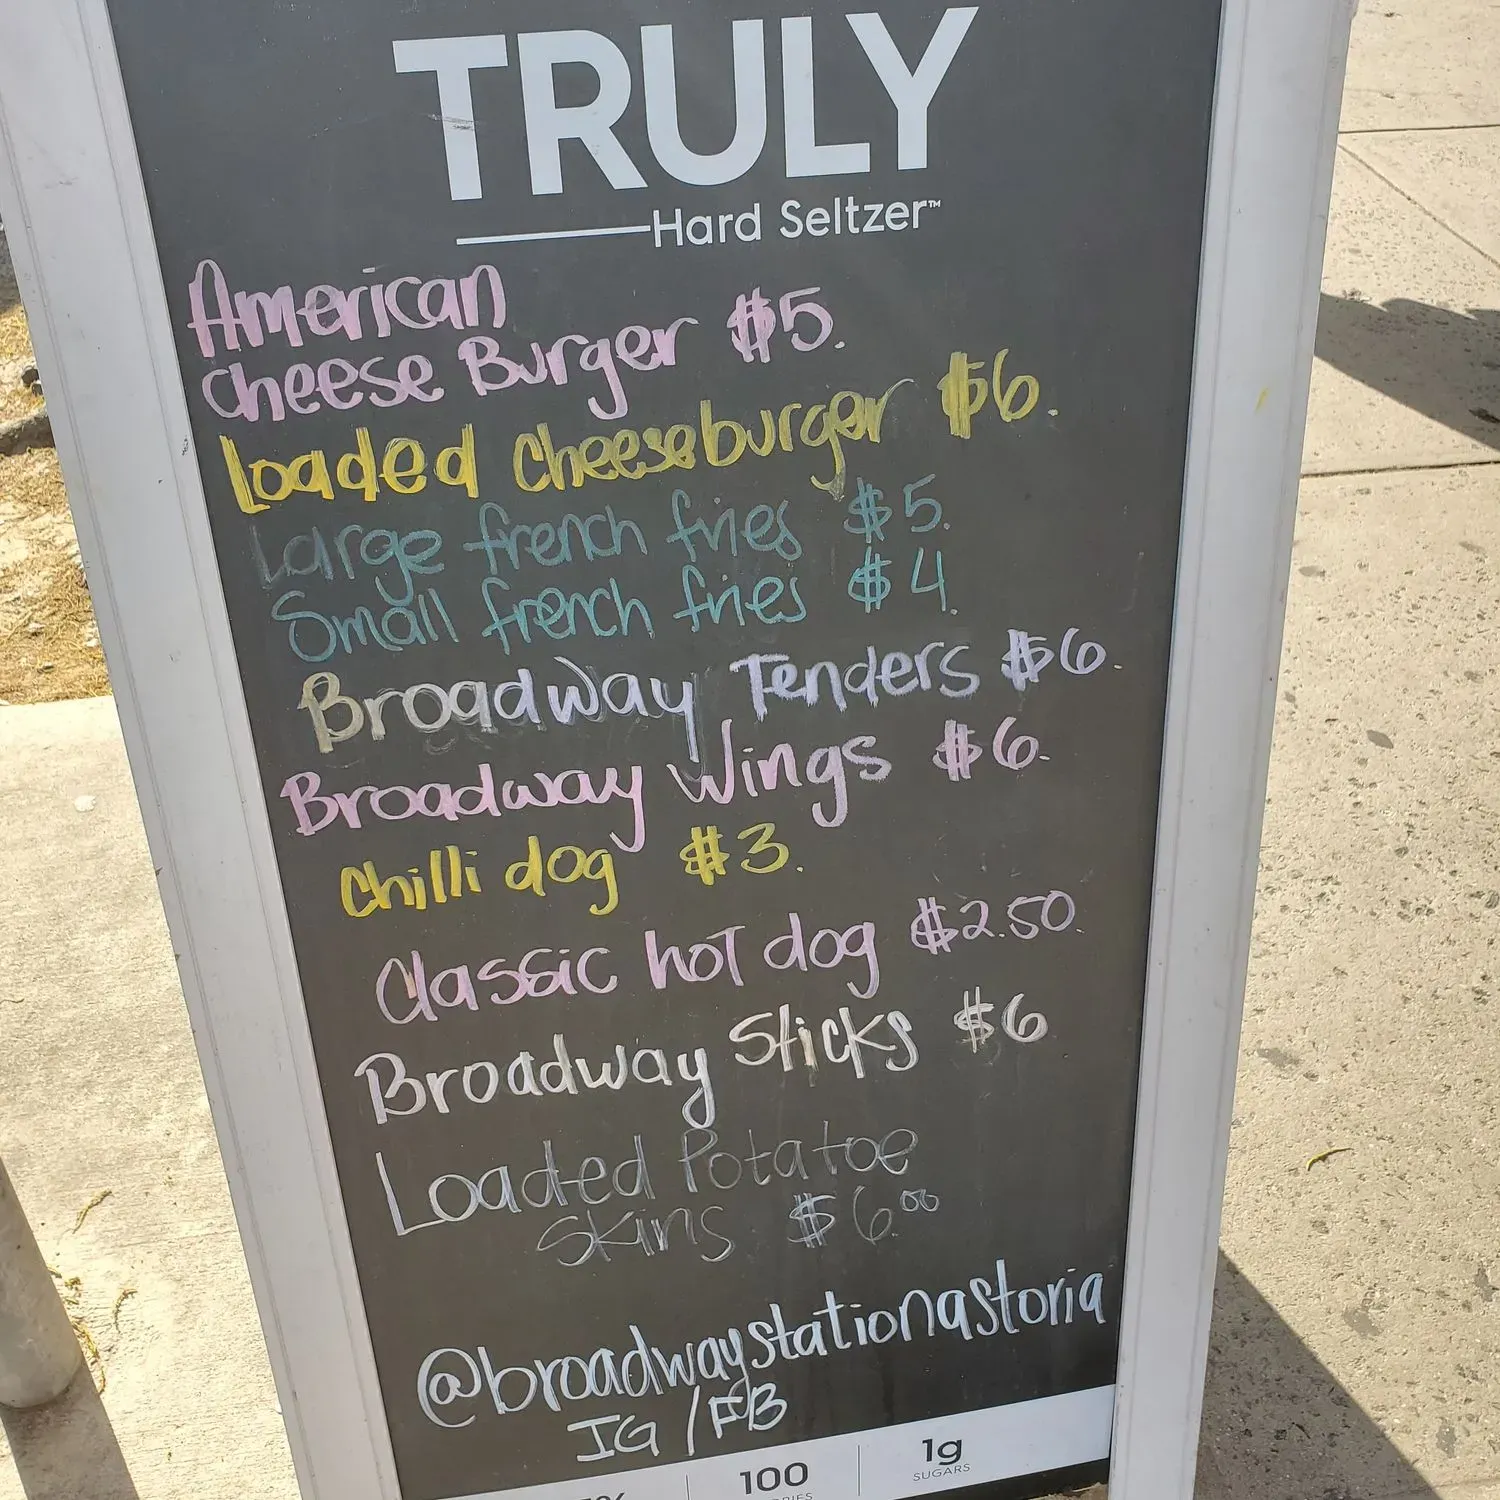 TRULY
Hard Seltzer™
American
Cheese Burger $5.
Loaded Cheeseburger $6.
Large french fries $5.
Small french fries $4.
Broadway Tenders $6.
Broadway Wings $6.
Chilli dog $3.
Classic hot dog $2.50.
Broadway Sticks $6
Loaded Potatoe
Skins $6.00
@broadwaystationastoria
IG / FB
100
1g
SUGARS